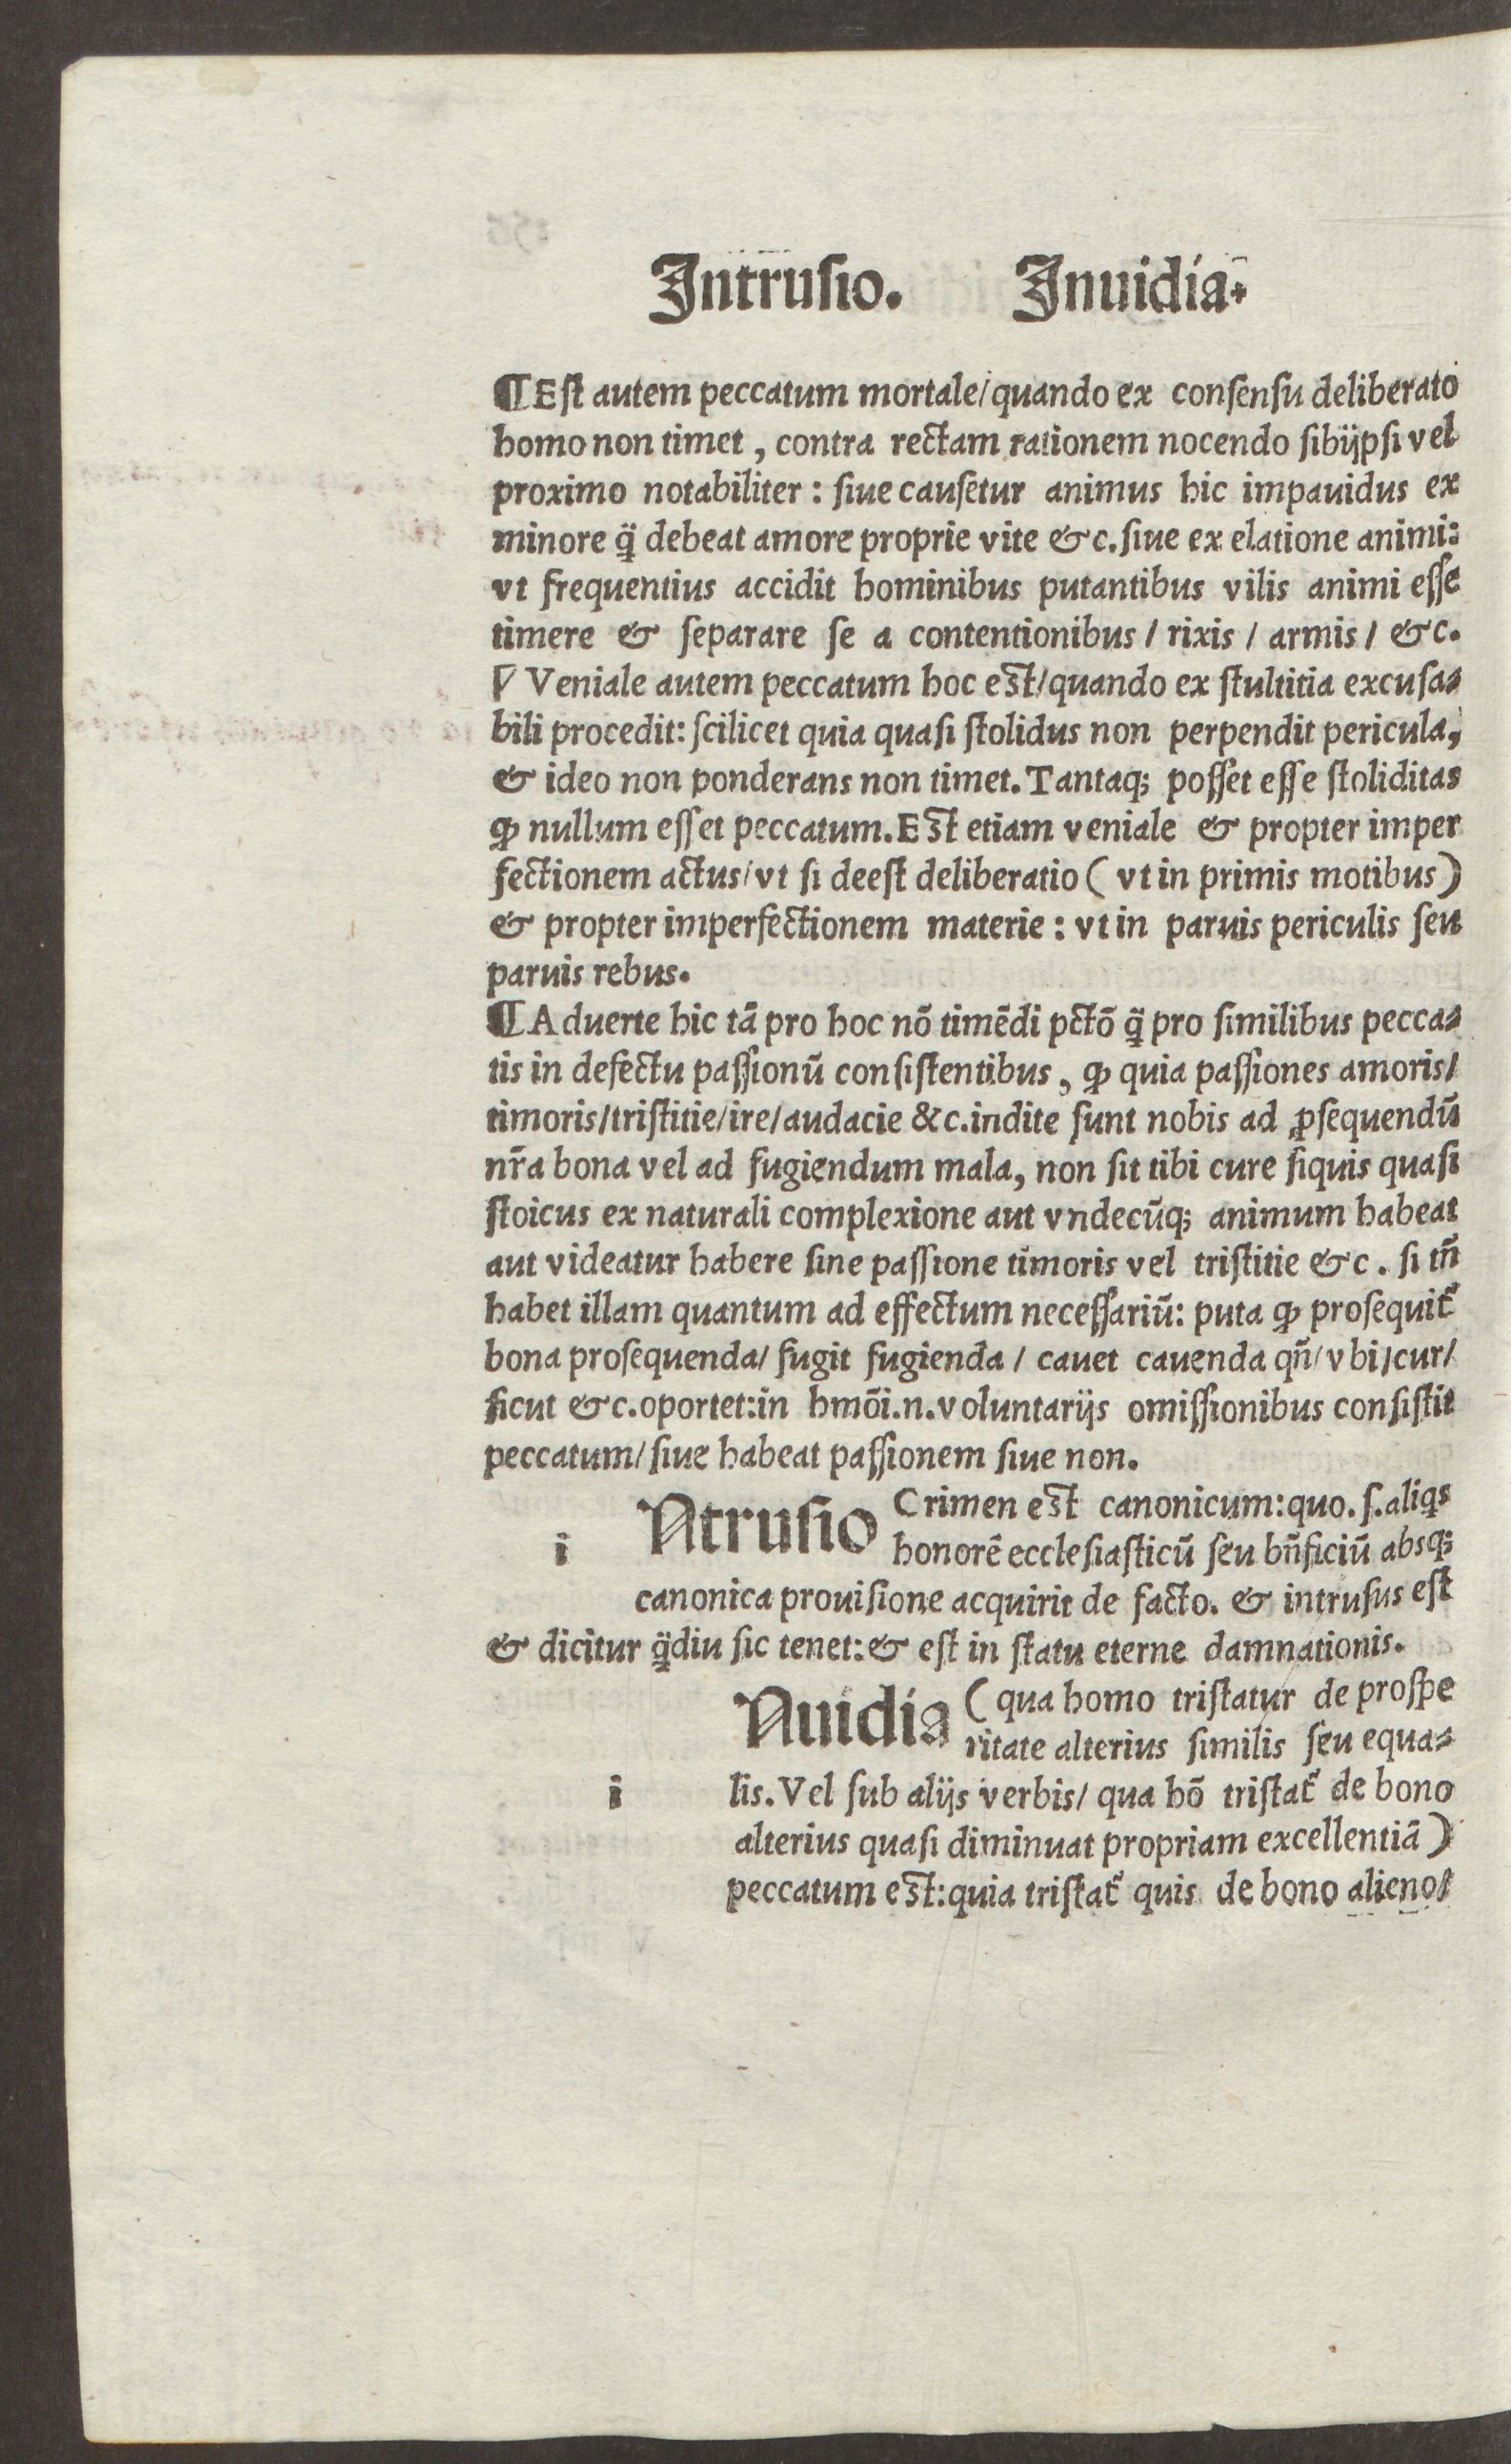 Intruſio. Inuidia.
¶ Eſt autem peccatum mortale/quando ex conſenſu deliberato
homo non timet, contra rectam rationem nocendo ſibijpſi vel
proximo notabiliter: ſiue cauſetur animus hic impauidus ex
minore q̃ debeat amore proprie vite &c. ſiue ex elatione animi:
vt frequentius accidit hominibus putantibus vilis animi eſſe
timere & ſeparare ſe a contentionibus / rixis / armis / &c.
℣ Veniale autem peccatum hoc eſt/quando ex ſtultitia excuſa⸗
bili procedit: ſcilicet quia quaſi ſtolidus non perpendit pericula,
& ideo non ponderans non timet. Tantaq; poſſet eſſe ſtoliditas
ꝙ nullum eſſet peccatum. Eſt etiam veniale & propter imper
fectionem actus/vt ſi deeſt deliberatio (vt in primis motibus)
& propter imperfectionem materie: vt in paruis periculis ſeu
paruis rebus.
¶ Aduerte hic tã pro hoc nõ timẽdi pctõ q̃ pro ſimilibus pecca⸗
tis in defectu paſſionũ conſiſtentibus, ꝙ quia paſſiones amoris/
timoris/triſtitie/ire/audacie &c. indite ſunt nobis ad ꝓſequendũ
nr̃a bona vel ad fugiendum mala, non ſit tibi cure ſiquis quaſi
ſtoicus ex naturali complexione aut vndecũq; animum habeat
aut videatur habere ſine paſſione timoris vel triſtitie &c. ſi tñ
habet illam quantum ad effectum neceſſariũ: puta ꝙ proſequit᷑
bona proſequenda/ fugit fugienda / cauet cauenda qñ/vbi/cur/
ſicut &c. oportet: in hmõi .n. voluntarijs omiſſionibus conſiſtit
peccatum/ ſiue habeat paſſionem ſiue non.
i Ntruſio Crimen eſt canonicum: quo .ſ. aliqs
honorẽ eccleſiaſticũ ſeu bñficiũ absq;
canonica prouiſione acquirit de facto. & intruſus eſt
& dicitur q̃diu ſic tenet: & eſt in ſtatu eterne damnationis.
Nuidia (qua homo triſtatur de proſpe
ritate alterius ſimilis ſeu equa⸗
i lis. Vel ſub alijs verbis/ qua hõ triſtat᷑ de bono
alterius quaſi diminuat propriam excellentiã)
peccatum eſt: quia triſtat᷑ quis de bono alieno/